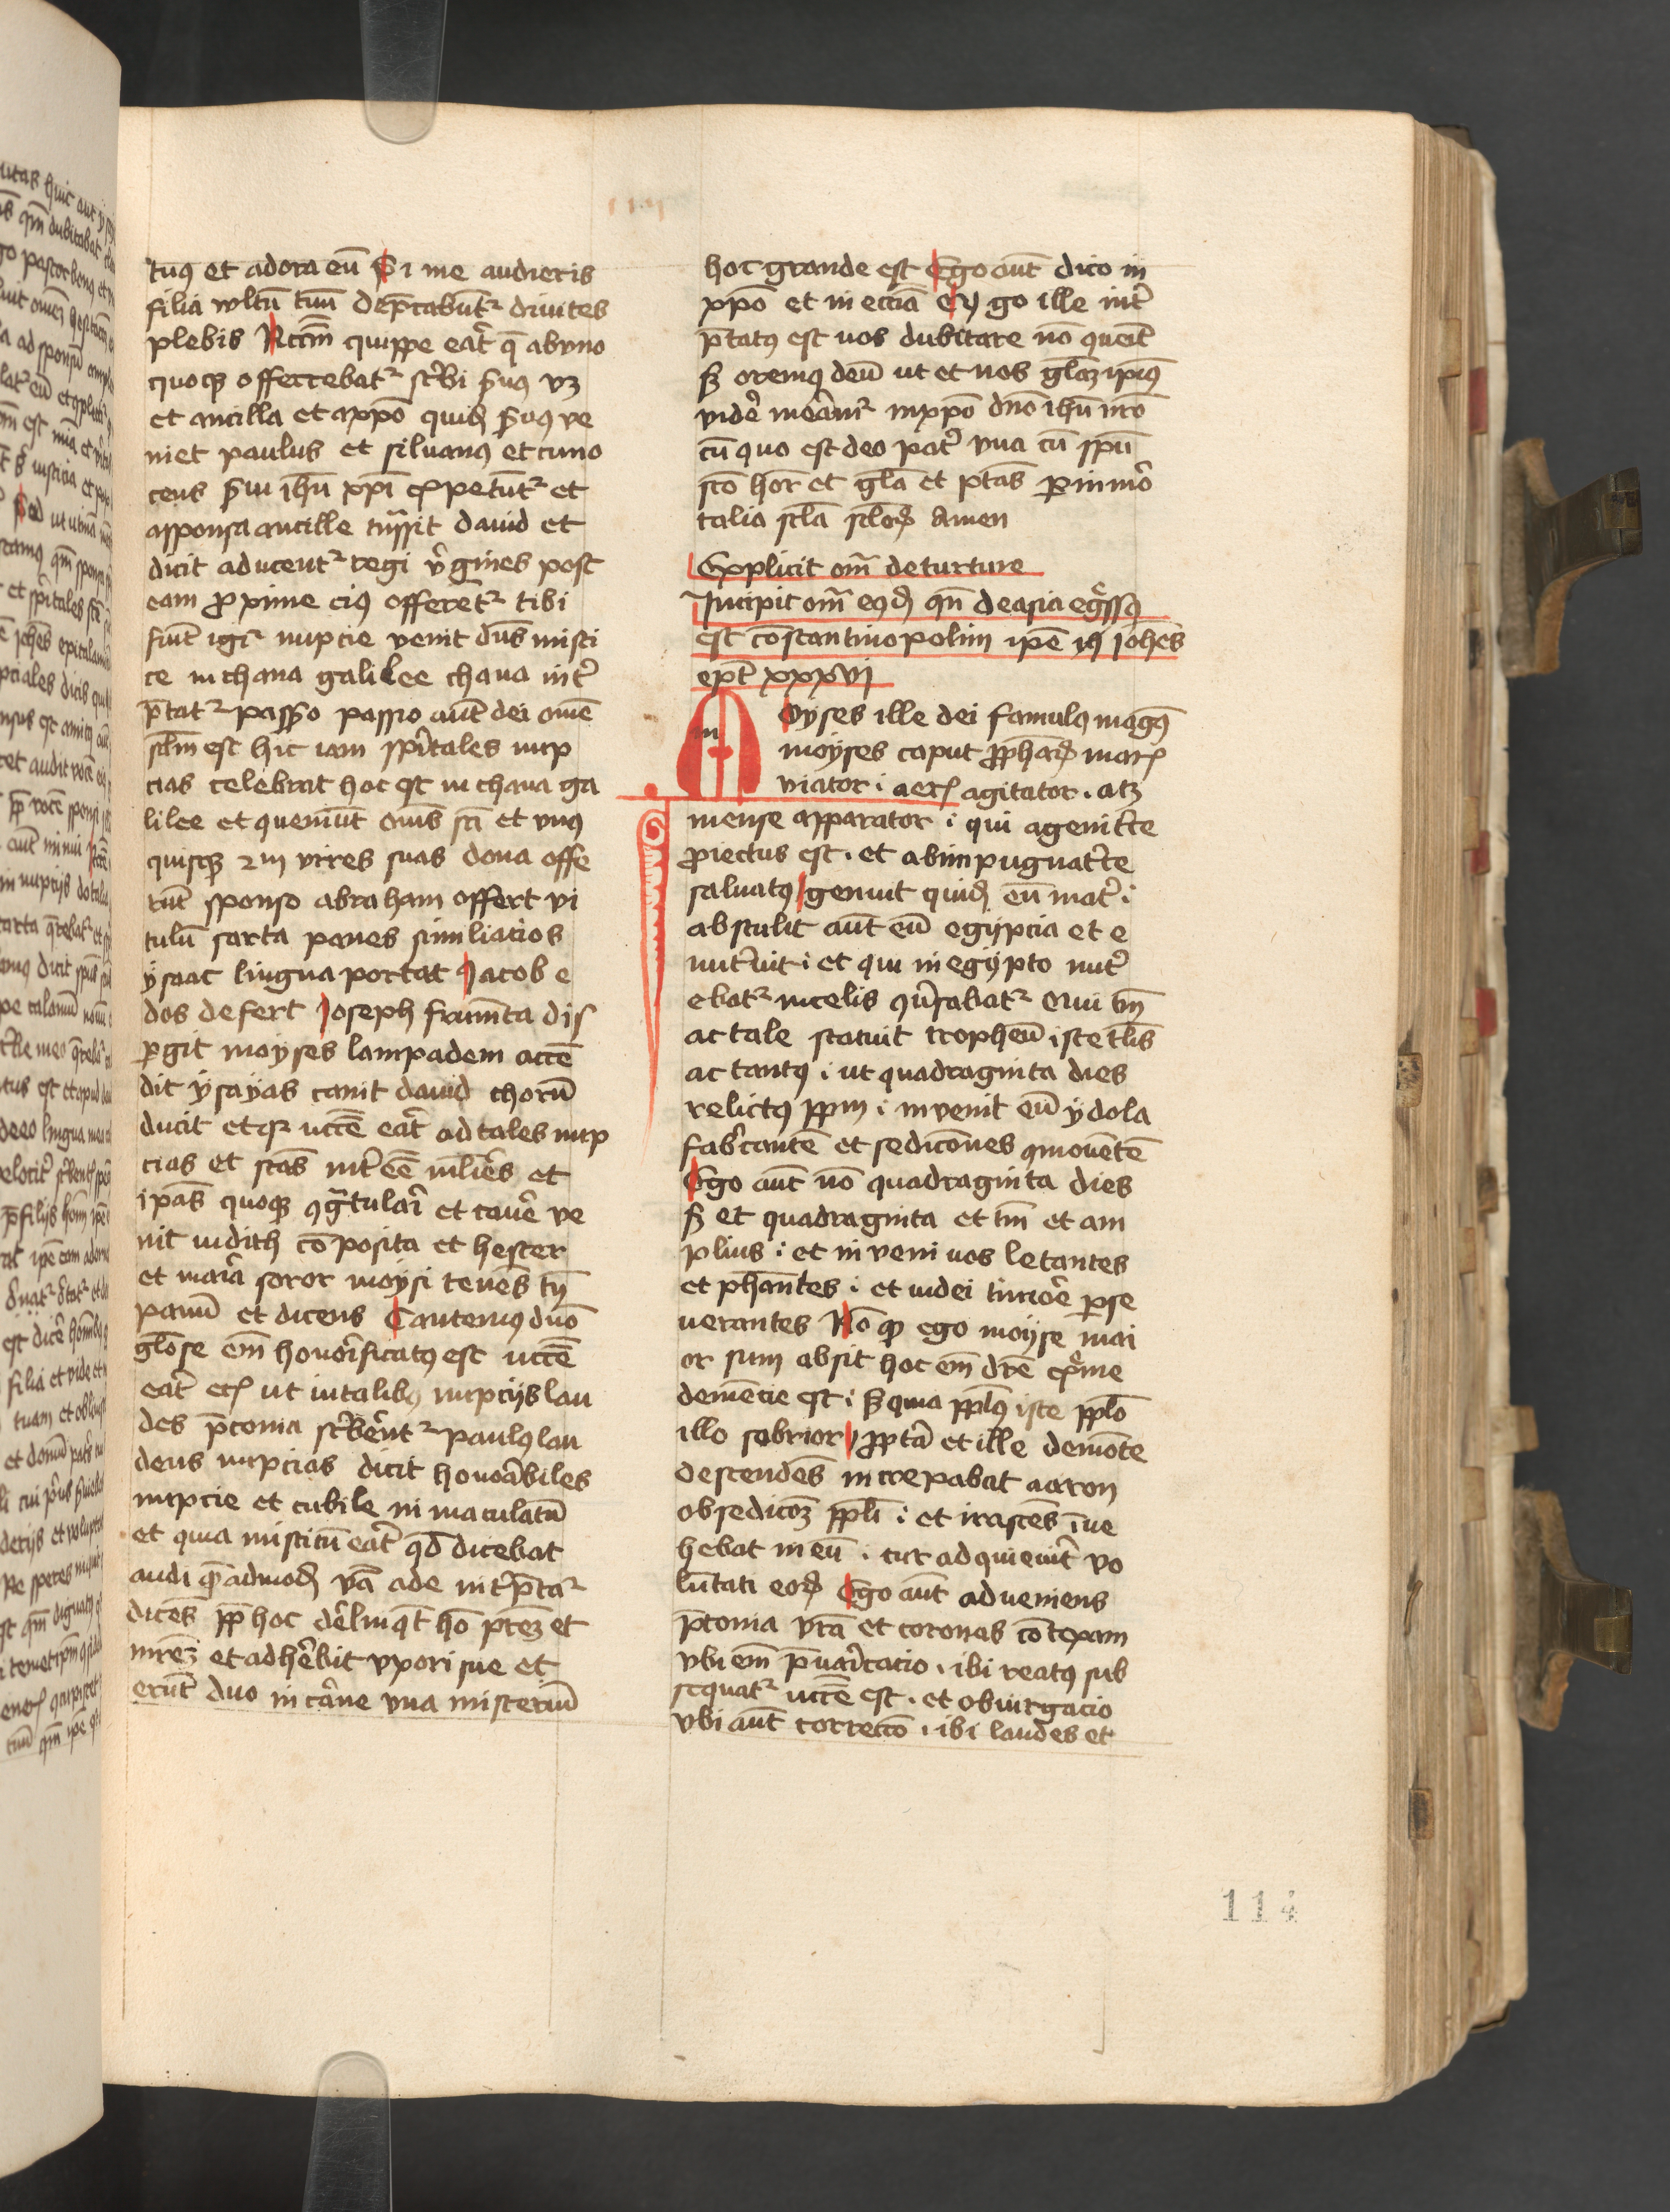 tuꝯ et adora eū Si me audieris
filia vultū tuū dep̄cabūtᷣ diuites
plebis Nccīn quippe eat̉ q̄ abyno
quoqꝫ offerrebatᷣ scͥbi s̄uꝯ vꝫ
et ancilla et axpō quidꝫ s̄uꝯ ve
niet paulus et siluanꝯ et timo
teus s̄ui ih̄u xp̄i expetūtᷣ et
asponsa ancille tͣnssit dauid et
dicit aducentᷣ regi vͥgines post
eam ꝓxime eiꝯ offeretᷣ tibi
fiūt igit̉ nupcie venit dn̄s misti
ce in chana galilee chana int̉
p̄tatᷣ passio passio aūt dei om̄e
sc̄lm est hic iam spͥitales nup
cias celebrat hoc est in chana ga
lilee et queniūt om̄s sc̄i et vnꝯ
quisqꝫ in vires suas dona offe
rūt sponso abraham offert vi
tulū sarra panes similiacios
ysaac lingua portat Jacob e
dos defert Joseph frumēta dis
ꝑgit moyses lampadem accē
dit ysayas canit dauid chorū
ducit etqꝛ nccē̄ eat̉ ad tales nup
cias et sc̄as int̉ee mlieͥs et
ipas̄ quoqꝫ ꝯgͣtulari et caue̓ ve
nit iudith cōposita et hester
et maria soror moysi tenēs tȳ
panū et dicens Cantemꝯ dn̄o
glōse em̄ honorificatꝯ est nccē
eat̉ etꝭ ut in talibꝯ nupcijs lau
des p̄conia scͥbērētᷣ paulꝯ lau
dens nupcias dicit honorabiles
nupcie et cubile inmaculatū
et quia misticū eat̉ qd̄ dicebat
audi qͣēadmodꝫ vͣa ade int̉p̄taᷣ
dicēs ꝓp̄ hoc derlinqt̄ hō pr̄eꝫ et
mr̄eꝫ et adherebit vxori sue et
erūt duo in carne vna misteriū
hoc grande est Ego aūt dico in
xpō et in ecciā Eꝝgo ille int̉
p̄tatꝯ est uos dubitare nō queūt
sꝫ oremꝯ deū ut et nos gl̄aꝫ ipiꝯ
vidē meāmᷣ inxpō dn̄o ih̄u nr̄o
cū quo est deo pat̉ vna cū spū
sc̄o hor̄ et gl̄a et ptās ꝑ inmoͬ
talia sc̄la sc̄loꝝ Amen
Explicit om̄ de turture
Incipit om̄ eꝯdꝫ qn̄ de asia eg̉ssꝯ
est cōstantinopolim ipē iꝯ Joh̄es
ep̄t xxxvi
Moyses ille dei famulꝯ magꝯ̄
moyses caput ꝓph̄aꝝ marꝭ
viator · aerꝭ agitator · atꝫ
mense apparator · qui agenit̉te
ꝓiectus est · et abimpugnat̉te
saluatꝯ genuit quidꝫ eū mat̉ ·
abstulit aūt eū egypcia et e
nut̉uit · et qui in egypto nut̉
ebatᷣ incelis ꝯūsabatᷣ Qui tm̄
ac tale statuit tropheū iste tl̄is
ac tantꝯ · ut quadraginta dies
relictꝯ pp̄m · invenit eū ydola
fabͥcantē et sedicōnes ꝯmouētē
Ego aūt nō quadraginta dies
sꝫ et quadraginta et tm̄ et am
plius · et in veni uos letantes
et ph̄antes · et indei timore ꝑse
uerantes Nō qꝫ ego moyse mai
or sum absit hoc em̄ dr̄e expͥme
demēcie est · sꝫ quia pp̄lꝯ iste pp̄lō
illo sobrior ꝓpt̄a et ille demōte
descendēs increpabat aaron
obsedicōꝫ pp̄li · et irascēs īue
hebat in eū · cur ad quieuit̉ vo
lūtati eoꝝ Ego aūt adueniens
p̄conia vr̄a et coronas cōtexam
vbi em̄ p̄uaricacio · ibi reatꝯ sub
sequatᷣ nccē est · et obiurgacio
vbi aūt correccō · ibi laudes et
114